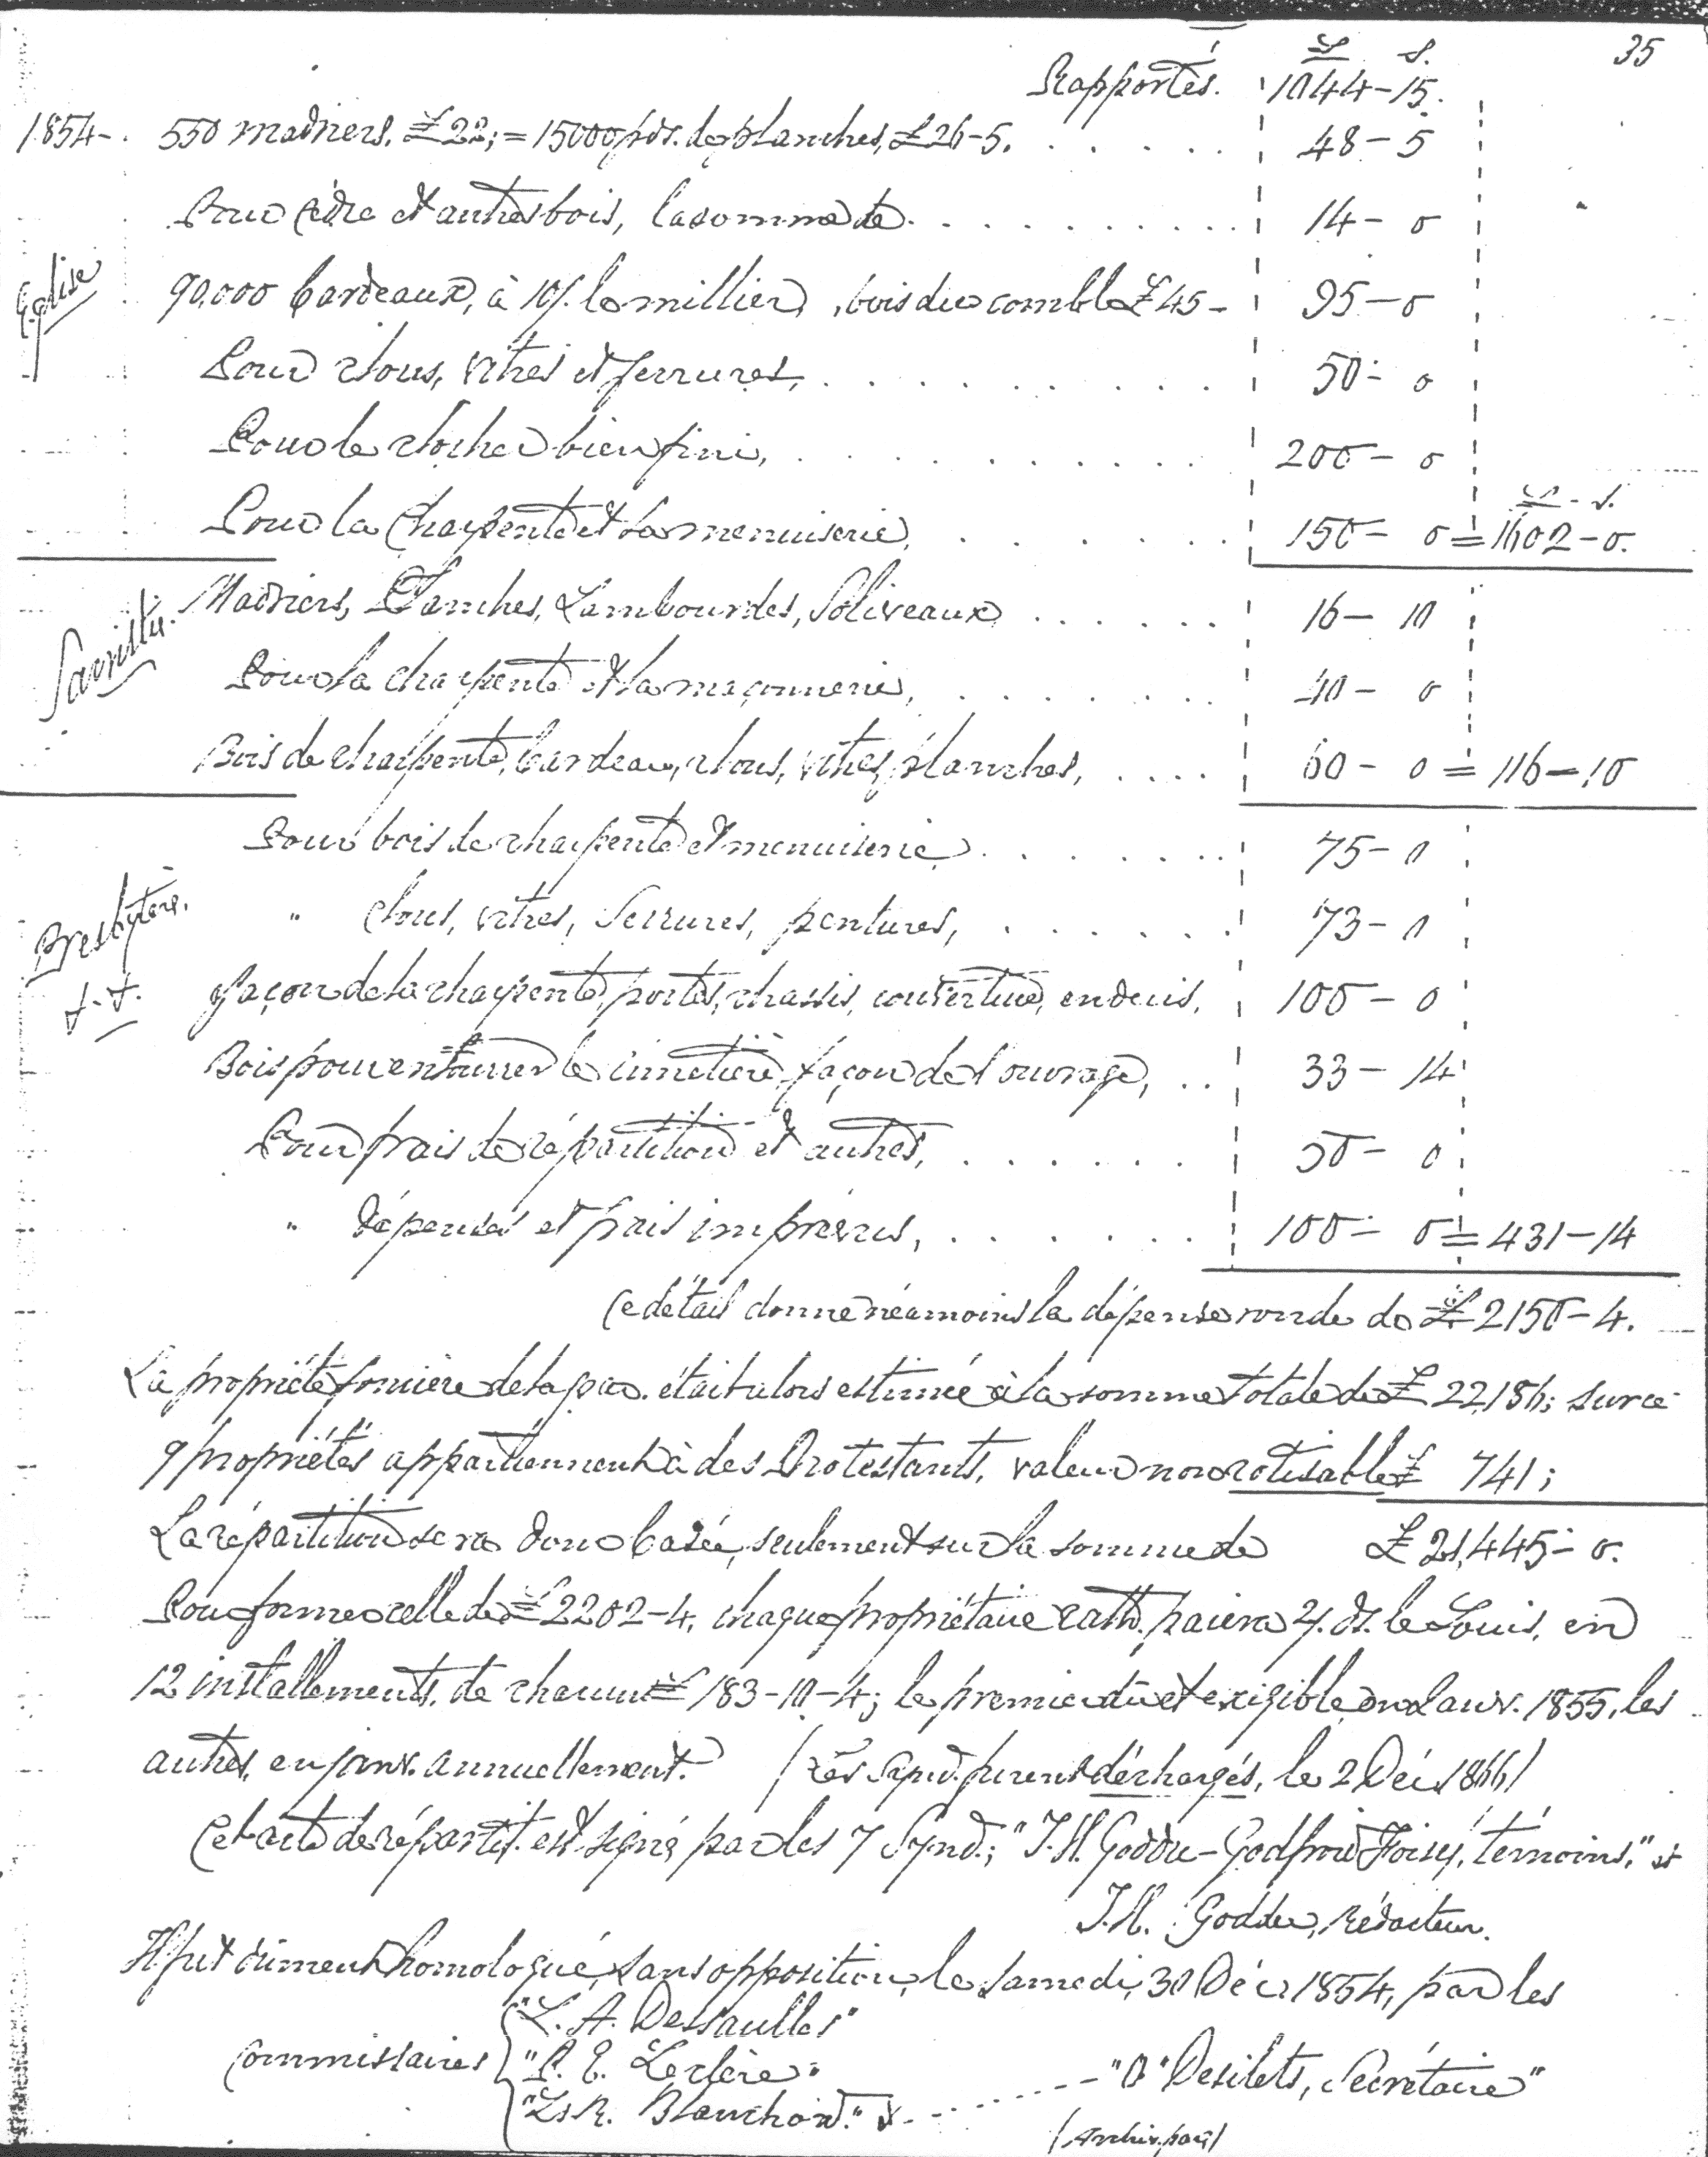 35
£ s.
Rapportés. 1044-15.
1854-. 550 madriers, £22; = 15000 pds. de planches, £26-5. . . . . . 48-5
Pour cèdre et autres bois, la somme de . . . . . . . . . . 14-0
Eglise
90,000 bardeaux, à 10/. le millier, bois du comble £45- 95-0
Pour clous, vitres et ferrures, . . . . . . . . . . 50-0
Pour le clocher bien fini, . . . . . . . . . . . 200-0
£ - s.
Pour la Charpente et la menuiserie, . . . . . . . 150-0 = 1602-0.
Sacristie.
Madriers, Planches, Lambourdes, Soliveaux . . . . . . 16-10
Pour la charpente et la maçonnerie, . . . . . . . . 40-0
Bois de charpente, bardeau, clous, vitres, planches, . . . . 60-0 = 116-10
Pour bois de charpente et menuiserie . . . . . . . 75-0
Presbytère.
" Clous, vitres, Serrures, pentures, . . . . . . . 73-0
&-&.
façon de la charpente, portes, chassis, couverture, enduis, 100-0
Bois pour entourrer le cimetière, façon de l'ouvrage, . . 33-14
Pour frais de répartition et autres, . . . . . . . 50-0
" dépenses et frais imprévus, . . . . . . . 100-0 = 431-14
Ce détail donne néamoins la dépense ronde de £2150-4.
La propriété foncière de la par. était alors estimée à la somme totale de £22,186; sur ce
9 propriétés appartiennent à des Protestants, valeur non cotisable £ 741;
La répartition sera donc basée, seulement sur la somme de £21,445-0.
Pour former celle de £2202-4, chaque propriétaire cath. paiera 2/. ds. le Louis, en
12 installements, de chacun £183-10-4; le premier dû et exigible en Janv. 1855, les
autres, en janv. annuellement. (Les Synd. furent déchargés, le 2 Déc 1866)
Cet acte de répartit. est signé par les 7 Synd.; "J.H. Goddu-Godfroid Foisy, témoins," et
J.H. Goddu, Rédacteur.
Il fut dûment homologué, sans opposition, le samedi, 30 Déc 1854, par les
"L. A. Dessaulles"
Commissaires "P. E. Leclère"
"O" Desilets, Secrétaire"
"Ls R. Blanchard." & . . . . . .
(Archiv. par.)